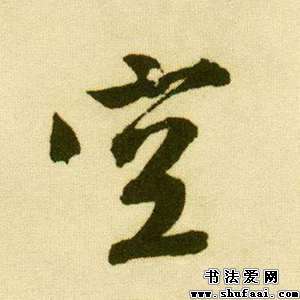 空
书法爱网
www.shufaai.com